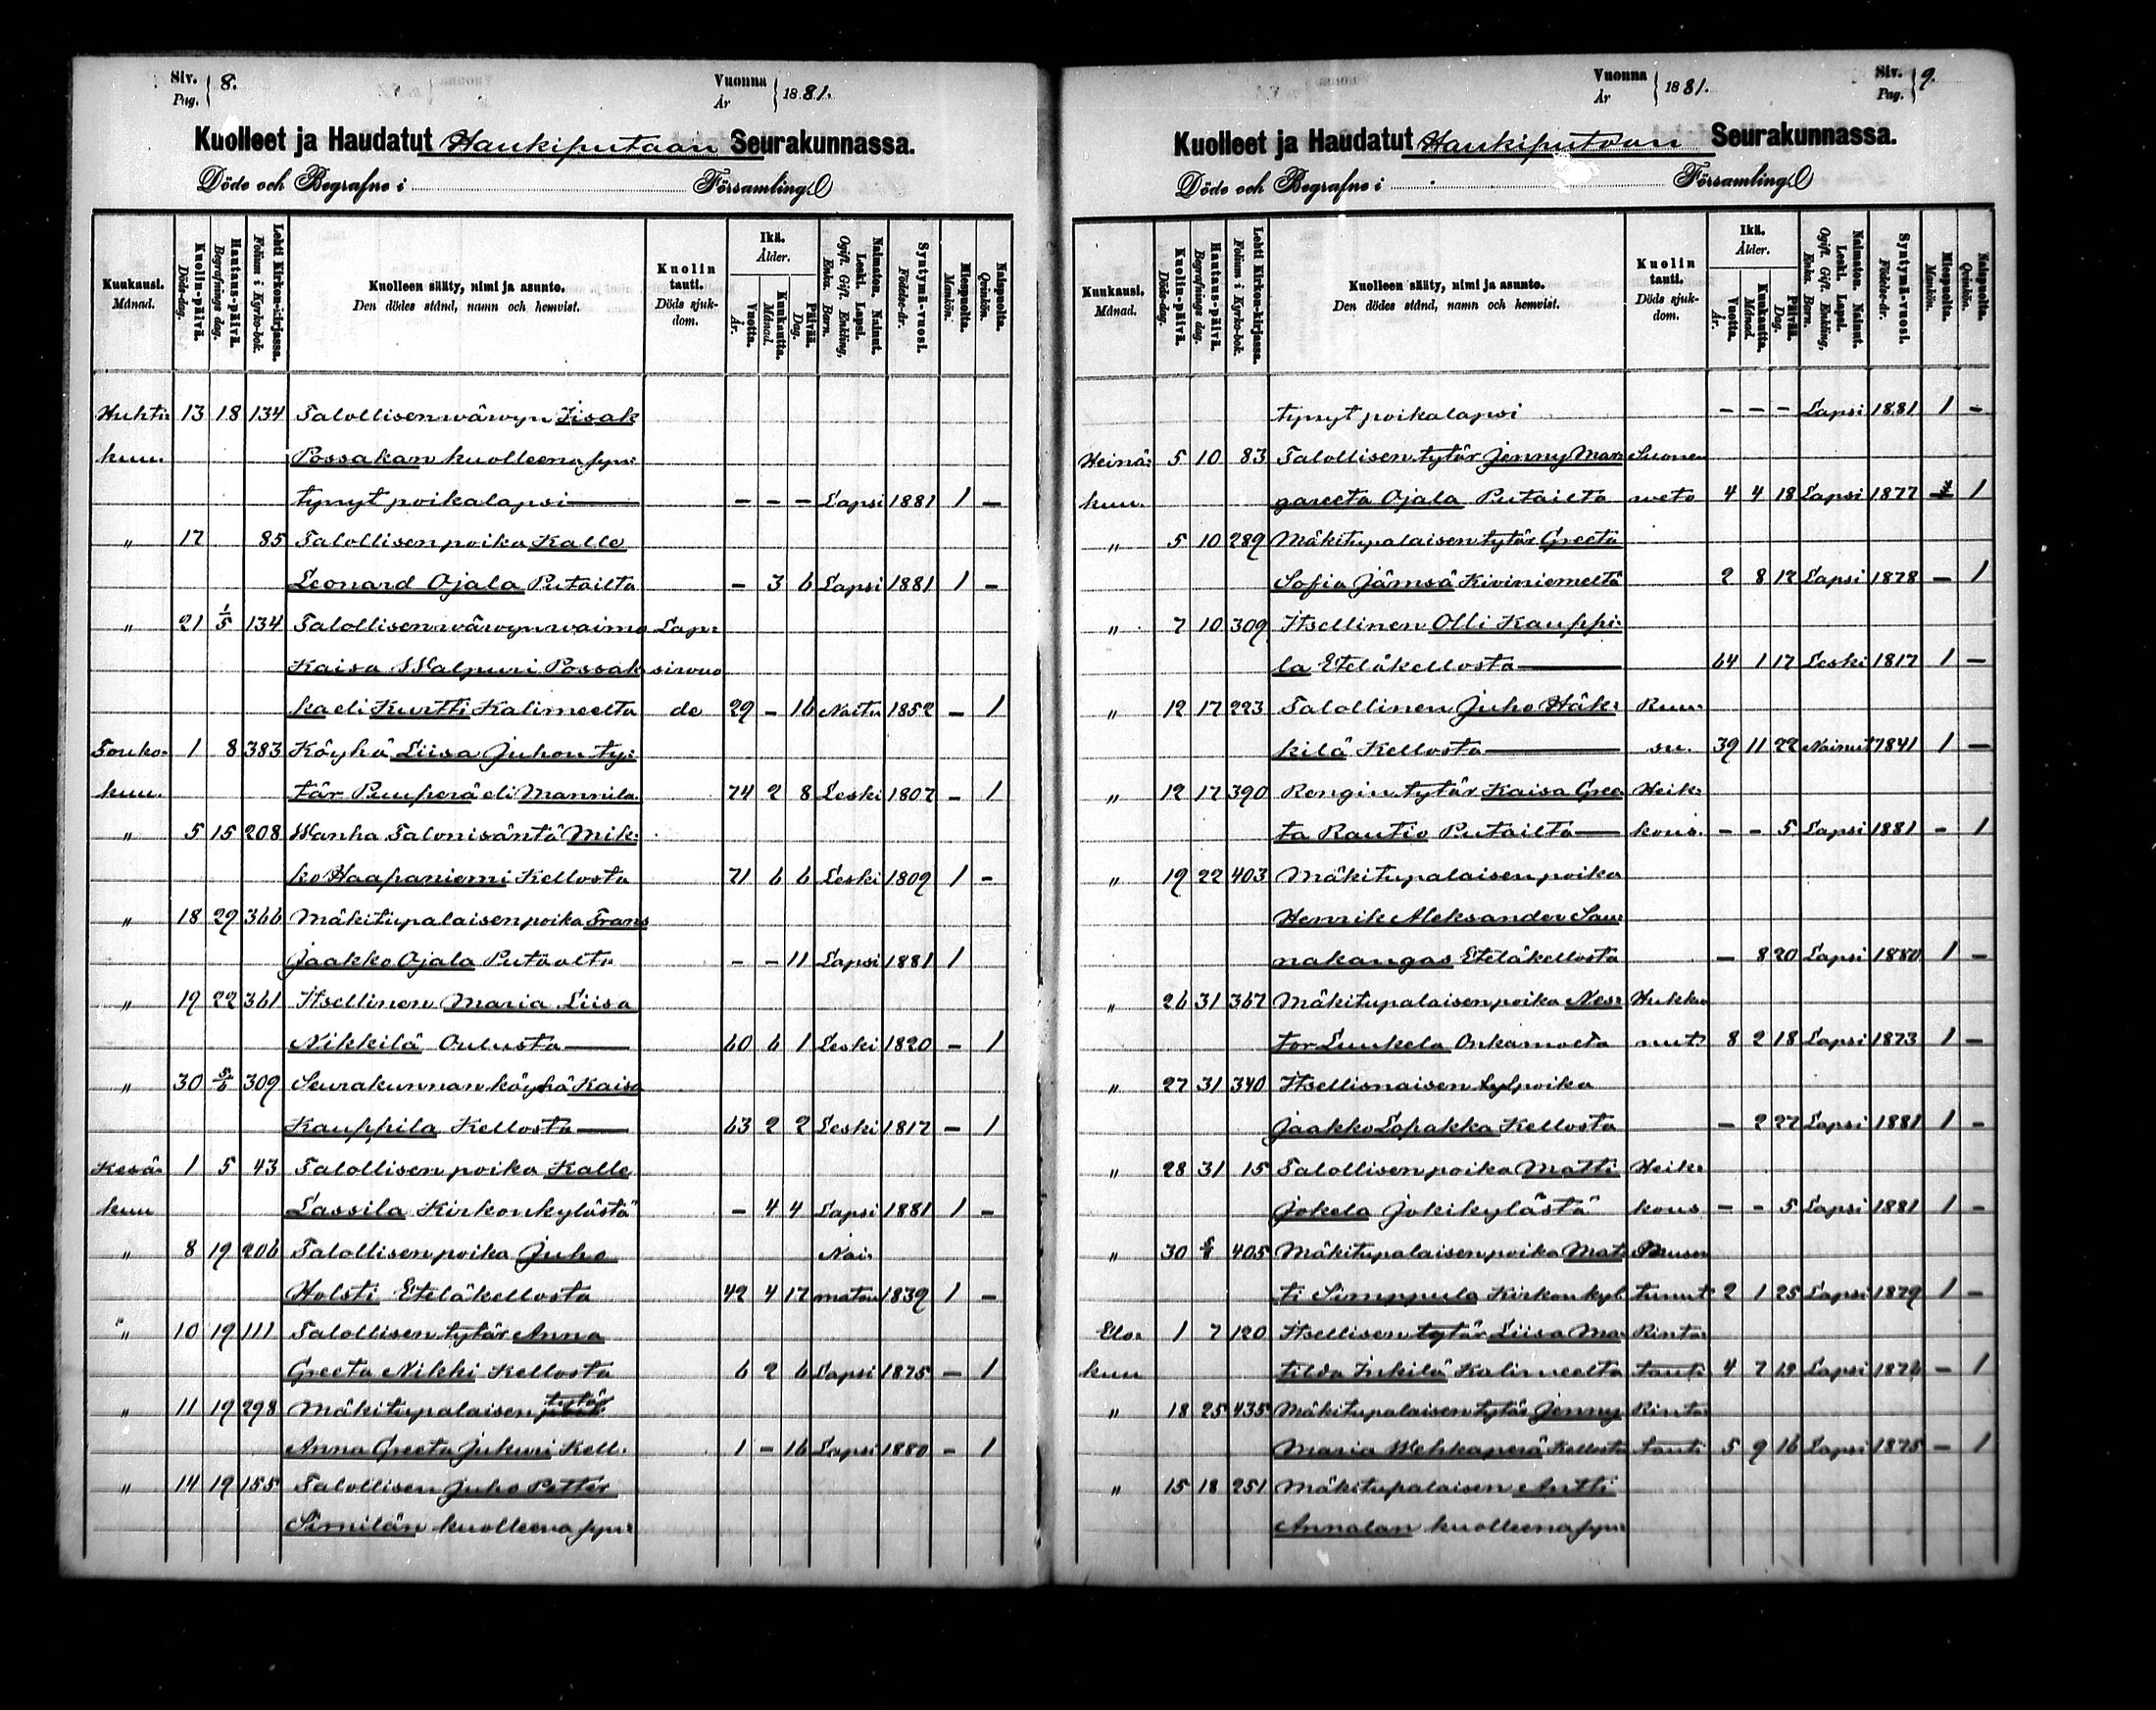 Siv. Pag. 8.
Vuonna År 1881.
Kuolleet ja Haudatut Haukiputaan Seurakunnassa.
Döde och Begrafne i Församling
Kuukausi. Månad.
Kuolin-päivä. Döds-dag.
Hautaus-päivä. Begrafnings dag.
Lehti Kirkon-kirjassa. Folium i Kyrko-bok.
Kuolleen sääty, nimi ja asunto. Den dödes stånd, namn och hemvist.
Kuolin tauti. Döds sjukdom.
Ikä. Ålder.
Vuotta. År.
Kuukautta. Månad.
Päivää. Dag.
Naimaton. Nainut. Leski. Lapsi. Ogift. Gift. Enkling, Enka. Barn.
Syntymä-vuosi. Födelse-år.
Miespuolta. Mankön.
Naispuolta. Qvinkön.
Huhti- 13 18 134 Talollisen wäwyn Iisak
kuu. Possakan kuolleena syn-
tynyt poikalapsi — — — Lapsi 1881 1 —
" 17 85 Talollisen poika Kalle
Leonard Ojala Putailta — 3 6 Lapsi 1881 1 —
" 21 1/5 134 Talollisen wäwyn waimo Lap-
Kaisa Walpuri Possak- siwuo
ka eli Kurtti Kalimeelta de 29 — 16 Naitu 1852 — 1
Touko- 1 8 383 Köyhä Liisa Juhon ty-
kuu. tär Puuperä eli Mannila 74 2 8 Leski 1807 — 1
" 5 15 208 Wanha Talonisäntä Mik-
ko Haapaniemi Kellosta 71 6 6 Leski 1809 1 —
" 18 29 366 Mäkitupalaisen poika Frans
Jaakko Ojala Putaalta — — 11 Lapsi 1881 1
" 19 22 361 Itsellinen Maria Liisa
Nikkilä Oulusta 60 6 1 Leski 1820 — 1
" 30 5/6 309 Seurakunnan köyhä Kaisa
Kauppila Kellosta 63 2 2 Leski 1817 — 1
Kesä- 1 5 43 Talollisen poika Kalle
kuu Lassila Kirkonkylästä — 4 4 Lapsi 1881 1 —
" 8 19 206 Talollisen poika Juho Nai-
Holsti Eteläkellosta 42 4 17 maton 1839 1 —
" 10 19 111 Talollisen tytär Anna
Greeta Nikki Kellosta 6 2 6 Lapsi 1875 — 1
" 11 19 298 Mäkitupalaisen tytär
Anna Greeta Jukuri Kell. 1 — 16 Lapsi 1880 — 1
" 14 19 155 Talollisen Juho Petter
Similän kuolleena syn-
Vuonna År 1881.
Siv. Pag. 9.
Kuolleet ja Haudatut Haukiputaan Seurakunnassa.
Döde och Begrafne i Församling
Kuukausi. Månad.
Kuolin-päivä. Döds-dag.
Hautaus-päivä. Begrafnings dag.
Lehti Kirkon-kirjassa. Folium i Kyrko-bok.
Kuolleen sääty, nimi ja asunto. Den dödes stånd, namn och hemvist.
Kuolin tauti. Döds sjukdom.
Ikä. Ålder.
Vuotta. År.
Kuukautta. Månad.
Päivää. Dag.
Naimaton. Nainut. Leski. Lapsi. Ogift. Gift. Enkling, Enka. Barn.
Syntymä-vuosi. Födelse-år.
Miespuolta. Mankön.
Naispuolta. Qvinkön.
tynyt poikalapsi — — — Lapsi 1881 1 —
Heinä- 5 10 83 Talollisen tytär Jenny Mar- Suonen
kuu. gareeta Ojala Putailta weto 4 4 18 Lapsi 1877 — 1
" 5 10 289 Mäkitupalaisen tytär Greeta
Sofia Jämsä Kiviniemeltä 2 8 12 Lapsi 1878 — 1
" 7 10 309 Itsellinen Olli Kauppi-
la Eteläkellosta 64 1 17 Leski 1817 1 —
" 12 17 223 Talollinen Juho Häk- Ruu-
kilä Kellosta su. 39 11 22 Nainut 1841 1 —
" 12 17 390 Rengin tytär Kaisa Gree Heik-
ta Rautio Putailta kous. — — 5 Lapsi 1881 — 1
" 19 22 403 Mäkitupalaisen poika
Henrik Aleksander Sau-
nakangas Eteläkellosta — 8 20 Lapsi 1880 1 —
" 26 31 367 Mäkitupalaisen poika Nes- Hukku
tor Luukela Onkamosta nut. 8 2 18 Lapsi 1873 1 —
" 27 31 340 Itsellisnaisen poika
Jaakko Lopakka Kellosta — 2 27 Lapsi 1881 1 —
" 28 31 15 Talollisen poika Matti Heik-
Jokela Jokikylästä kous — — 5 Lapsi 1881 1 —
" 30 405 Mäkitupalaisen poika Mat-
ti Simppula Kirkonkyl. tunut 2 1 25 Lapsi 1879 1 —
Elo- 1 7 120 Itsellisen tytär Liisa Ma- Rinta-
kuu tilda Inkilä Kalimeelta tauti 4 7 Lapsi 1876 — 1
" 18 25 435 Mäkitupalaisen tytär Jenny Rinta-
Maria Wehkaperä Kellosta tauti 5 9 16 Lapsi 1875 — 1
" 15 18 251 Mäkitupalaisen Antti
Annalan kuolleena syn-